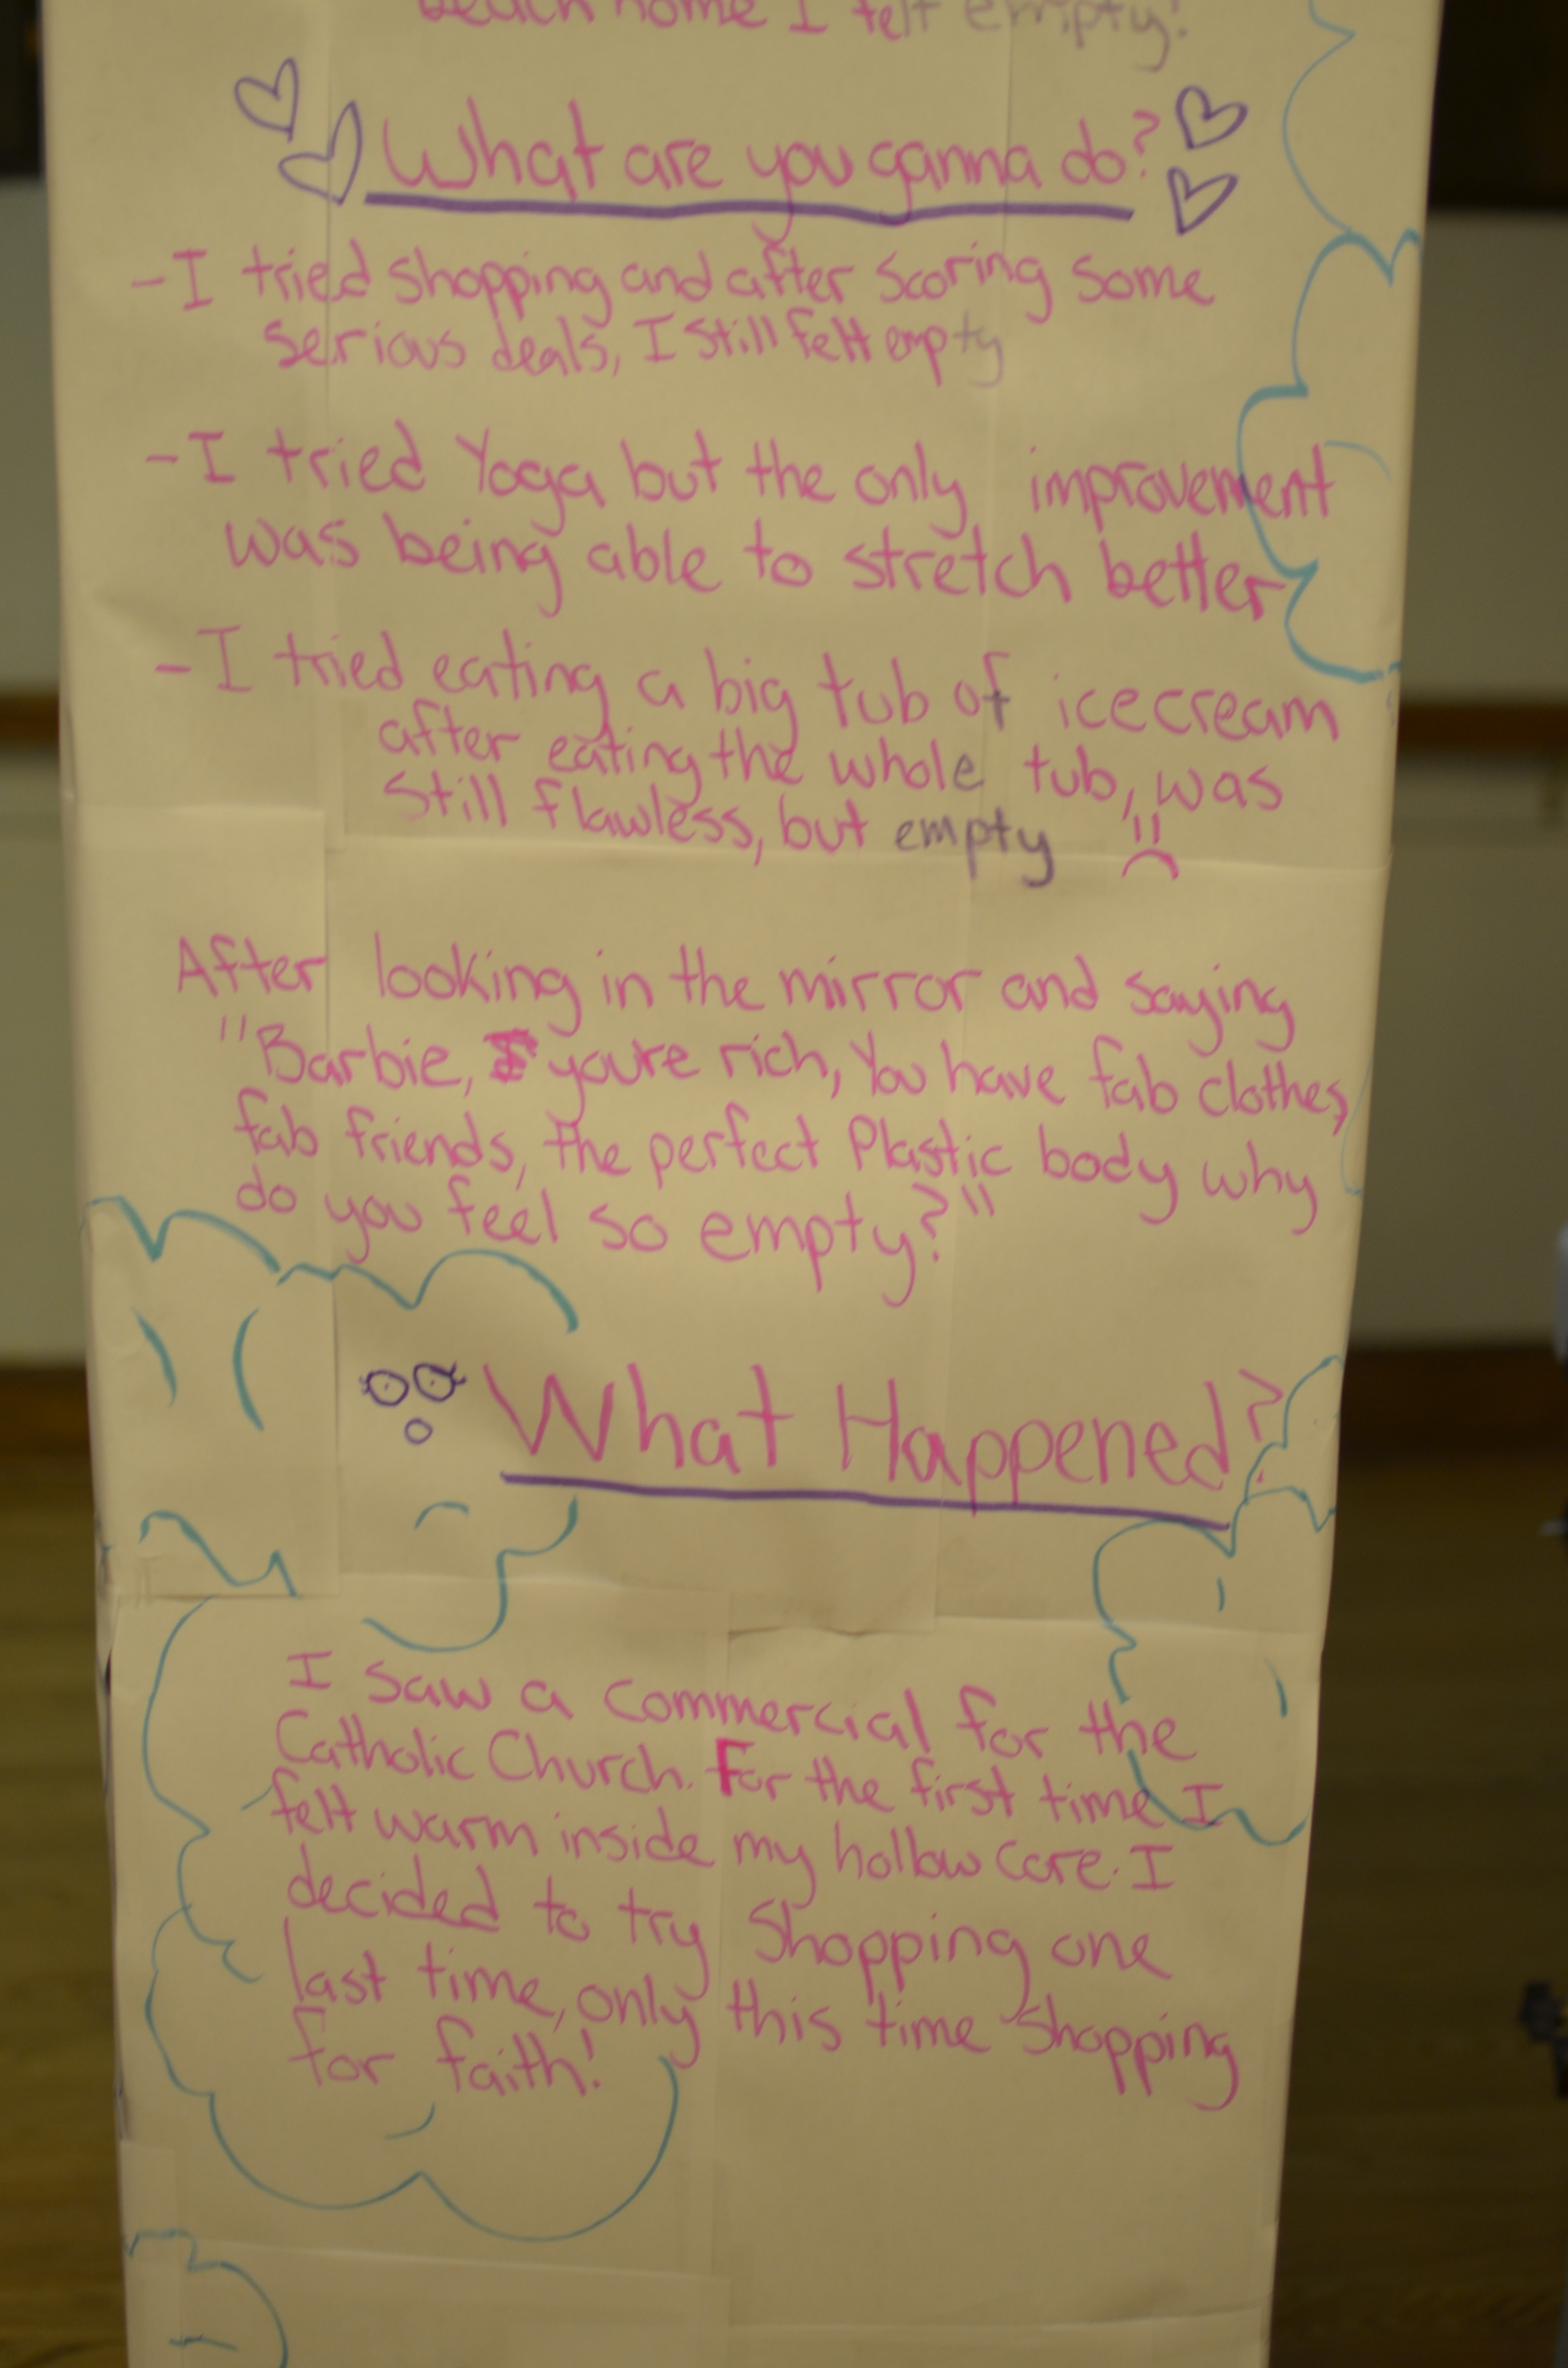 beach home I felt empty!
What are you ganna do?
-I tried shopping and after scoring some
serious deals, I still felt empty
-I tried Yoga but the only improvement
was being able to stretch better
-I tried eating a big tub of icecream
after eating the whole tub, was
still flawless, but empty
After looking in the mirror and saying
"Barbie, you're rich, You have fab clothes,
fab friends, the perfect Plastic body why
do you feel so empty?"
What Happened?
I saw a commercial for the
Catholic Church. For the first time I
felt warm inside my hollow core. I
decided to try Shopping one
last time, only this time shopping
for faith!